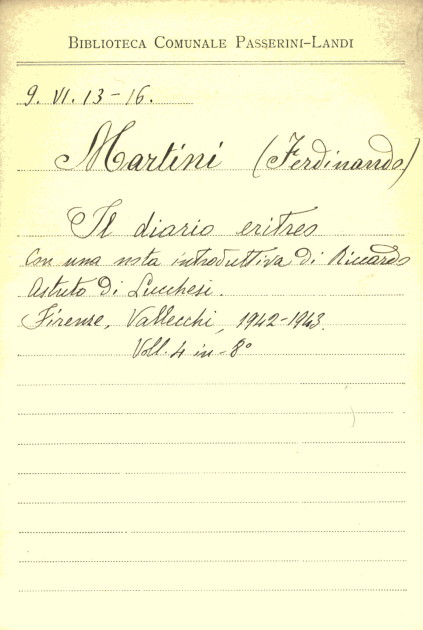 BIBLIOTECA COMUNALE PASSERINI-LANDI
9. VI. 13-16.
Martini (Ferdinando)
Il diario eritreo
Con una nota introduttiva di Riccardo
Astuto di Lucchesi.
Firenze, Vallecchi, 1942-1943.
Voll. 4 in-8°